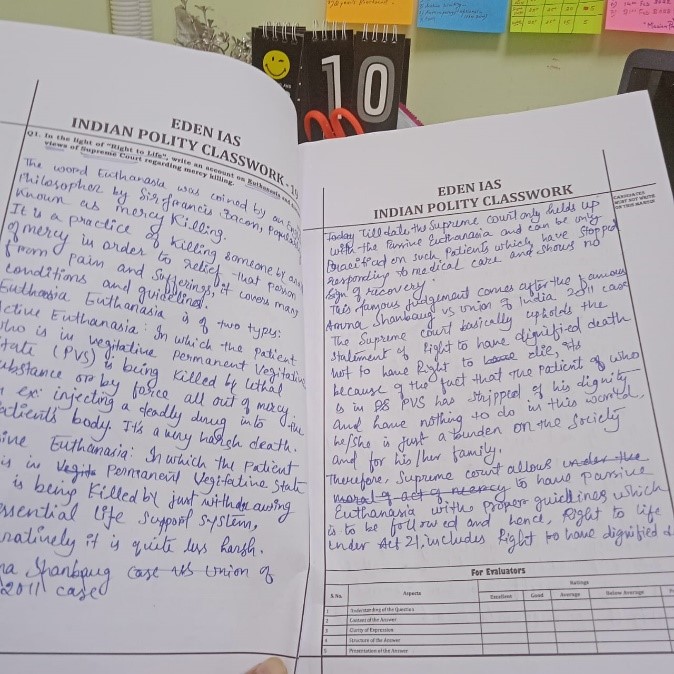 10
EDEN IAS
INDIAN POLITY CLASSWORK - 1
Q1. In the light of "Right to Life", write an account on Euthanasia and
views of Supreme Court regarding mercy killing.
The word Euthanasia was coined by an
Philosopher by Sir francis Bacon,
Known as mercy Killing.
It is a practice of Killing someone by
of mercy in order to relief that person
from pain and sufferings, it covers many
conditions and guidelines.
Euthanasia is of two types:
ctive Euthanasia: In which the patient
who is in vegitative permanent
State (PVS) is being killed by lethal
ubstance or by force all out of mercy.
ex: injecting a deadly drug into the
atient's body. It's a very harsh death.
ive Euthanasia: In which the patient
is in Permanent Vegitative State
is being Killed by just withdrawing
essential life support system,
natively it is quite less harsh.
na Shanbaug case vs Union of
2011 case
EDEN IAS
INDIAN POLITY CLASSWORK
CANDIDATES
MUST NOT WRITE
ON THIS MARGIN
Today till date the Supreme court only helds up
with the Passive Euthanasia and can be only
on such patients which have stopped
responding to medical care and shows no
sign of recovery.
This famous judgement comes after the famous
Aruna Shanbaug vs Union of India 2011 case
The Supreme court basically upholds the
statement of Right to have dignified death
not to have Right to die, its
because of the fact that the patient who
is in PVS has stripped of his dignity
and have nothing to do in this world,
he/she is just a burden on the Society
and for his/her family.
Therefore, Supreme court allows under the
moral of act of mercy to have Passive
Euthanasia with proper guidlines which
is to be followed and hence, Right to life
under Act 21, includes Right to have dignified d
For Evaluators
S.No. Aspects Ratings
Excellent Good Average Below Average
1 Understanding of the Question
2 Content of the Answer
3 Clarity of Expression
4 Structure of the Answer
5 Presentation of the Answer